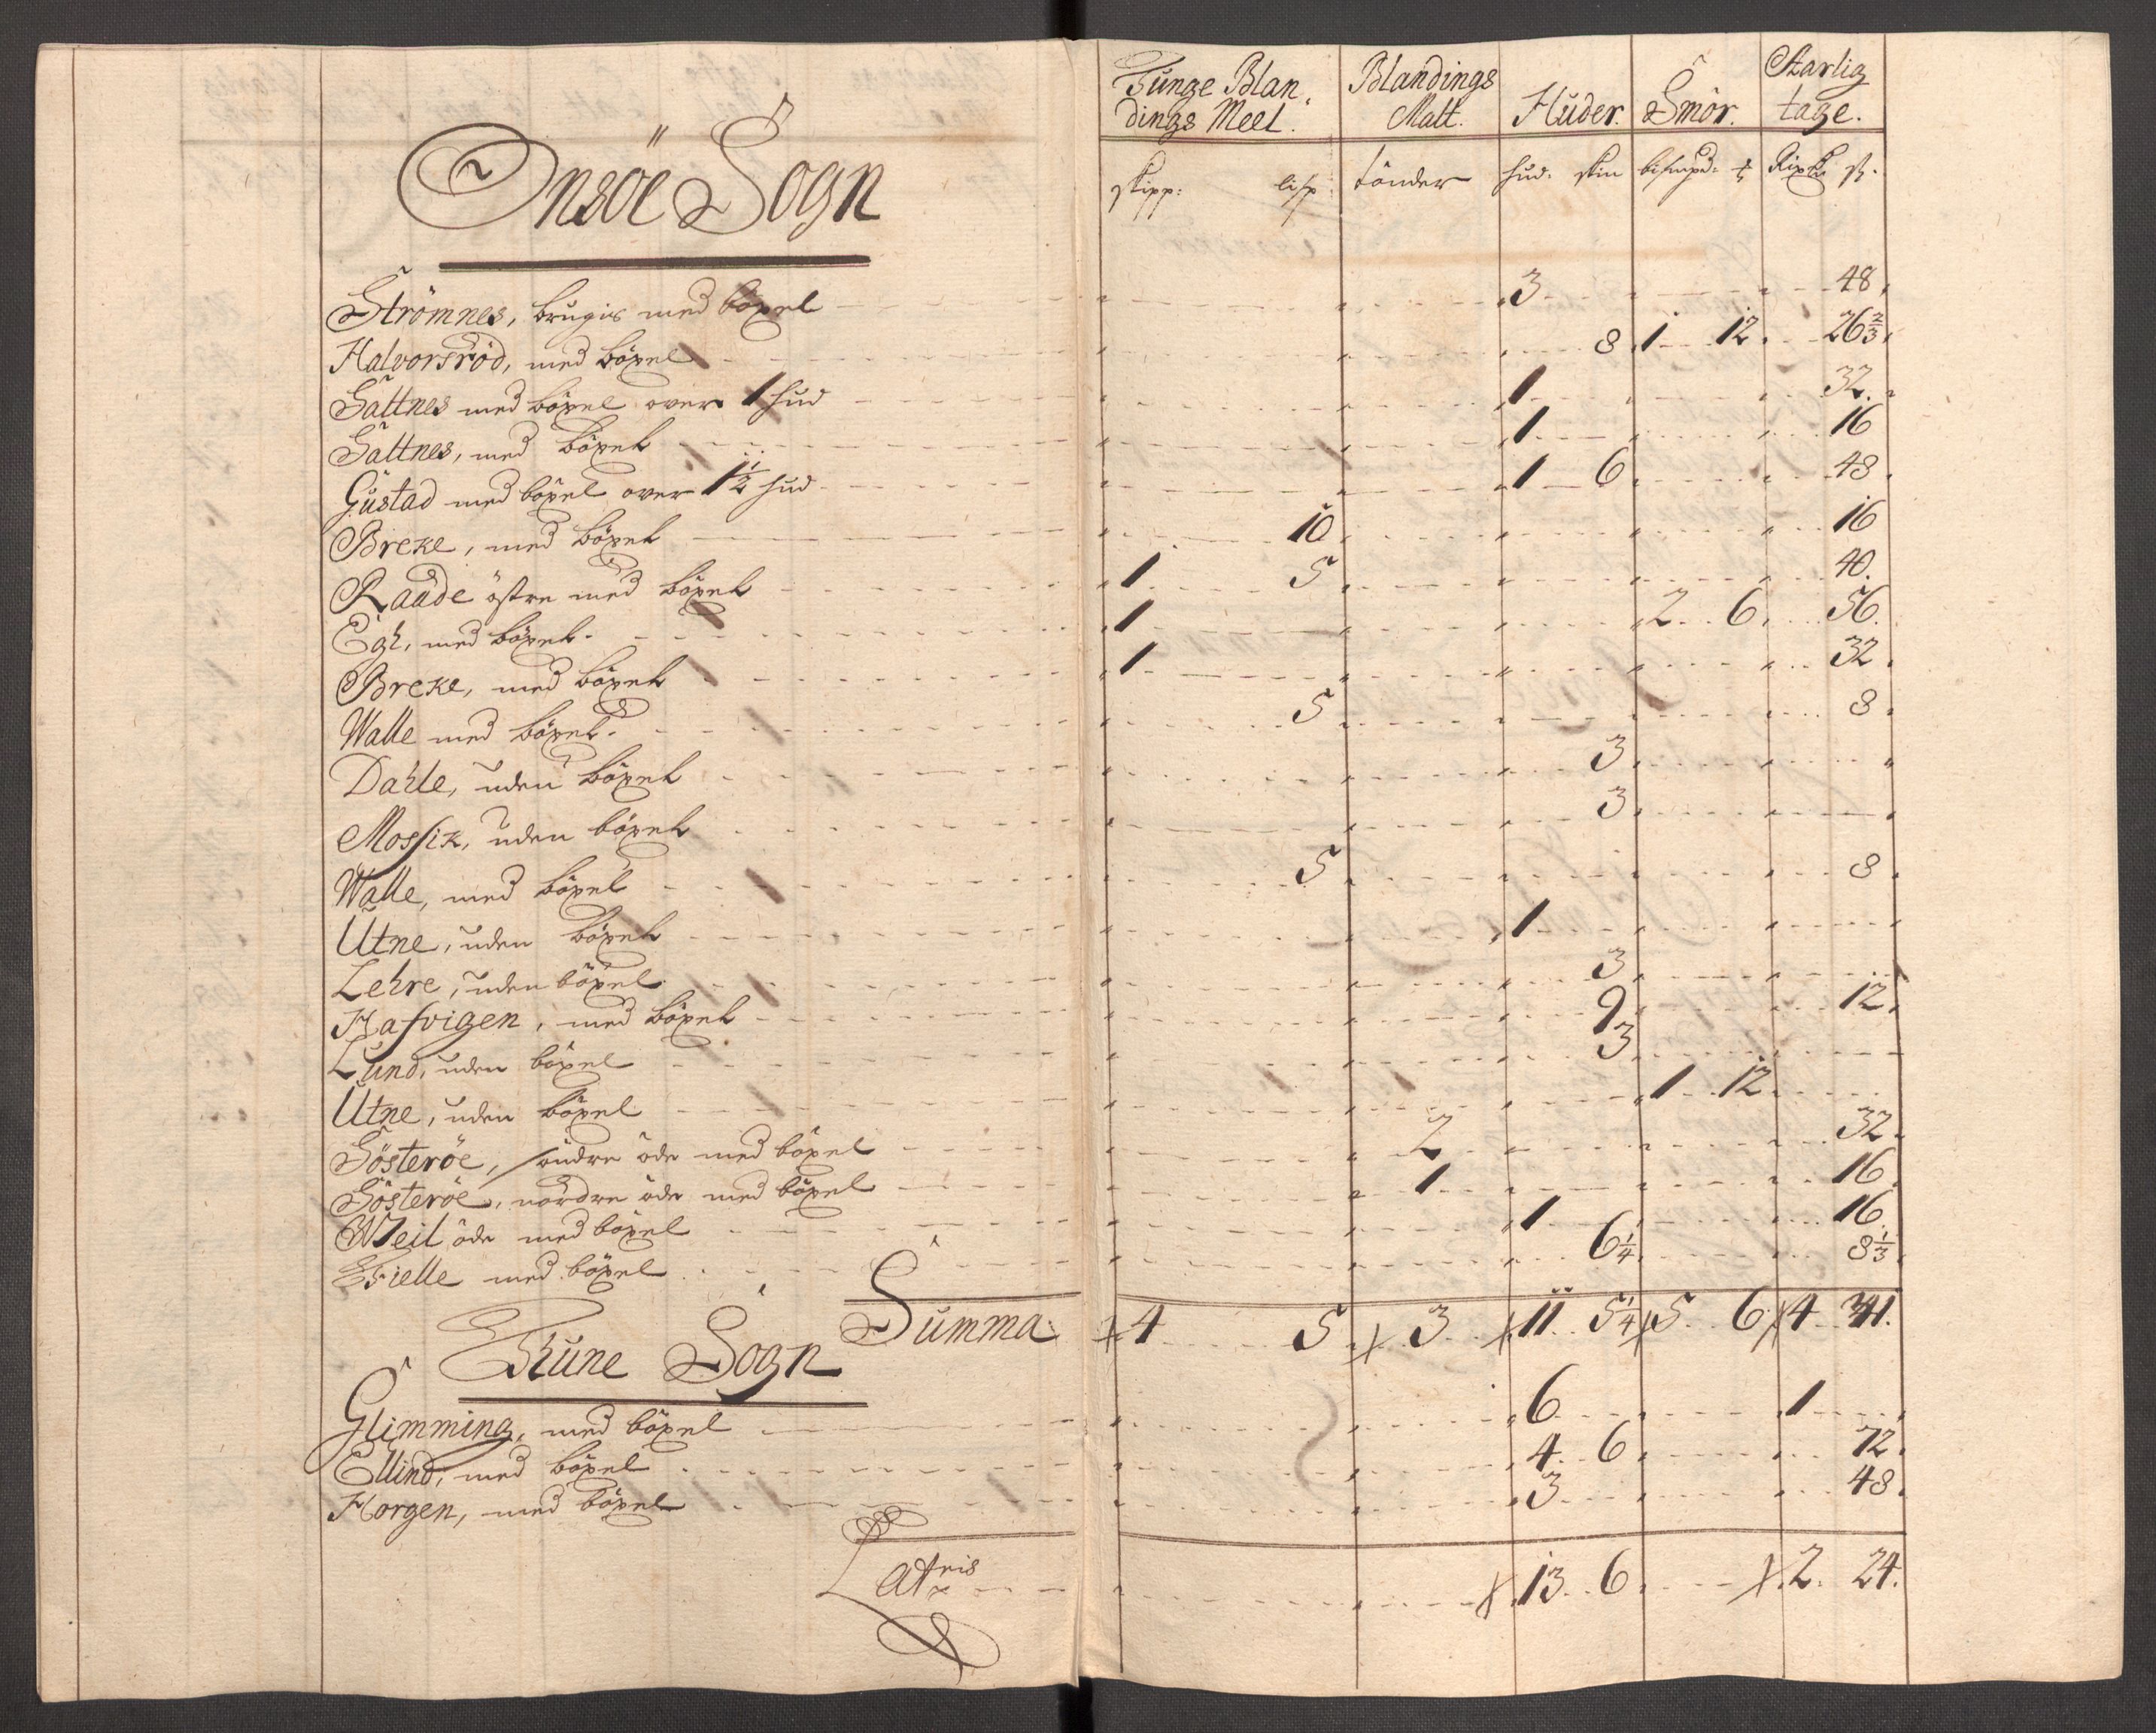 Tunge Blandings Meel. Blandings Malt. Huder. Smör. Aarlig tage.
skipp: lisp: tönder hud: skin bismpd: Rixdr ß.
Onsöe Sogn
Strömnes, brugis med böxel 3 48
Halvorsröd, med böxel 8 1 12 26 2/3
Sattnes med böxel over 1 hud 1 32
Sattnes, med böxel 1 16
Gustad med böxel over 1 1/2 hud 1 6 48
Breke, med böxel 10 16
Raade östre med böxel 1 5 40
Egh, med böxel 1 2 6 56
Breke, med böxel 1 32
Walle med böxel 5 8
Dahle, uden böxel 3
Mossik, uden böxel 3
Walle, med böxel 5 8
Utne, uden böxel 1
Lehre, uden böxel 3
Hafvigen, med böxel 9 12
Lund, uden böxel 3
Utne, uden böxel 1 12
Sösteröe, söndre öde med böxel 2 32
Sösteröe, nordre öde med böxel 1 16
Weil öde med böxel 1 16
Fielle med böxel 6 1/4 8 1/3
Summa 4 5 3 11 5 1/4 5 6 4 341
Thune Sogn
Glimming, med böxel 6 1
Ellind, med böxel 4 6 72
Horgen, med böxel 3 48
Lateris 13 6 2 24